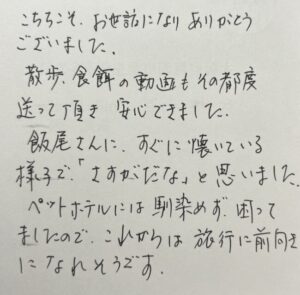 こちらこそ、お世話になり ありがとう
ございました。
散歩、食餌の動画も その都度
送って頂き 安心できました。
飯尾さんに、すぐに懐いている
様子で、「さすがだな」と思いました。
ペットホテルには 馴染めず、困って
ましたので、これからは 旅行に前向き
になれそうです。